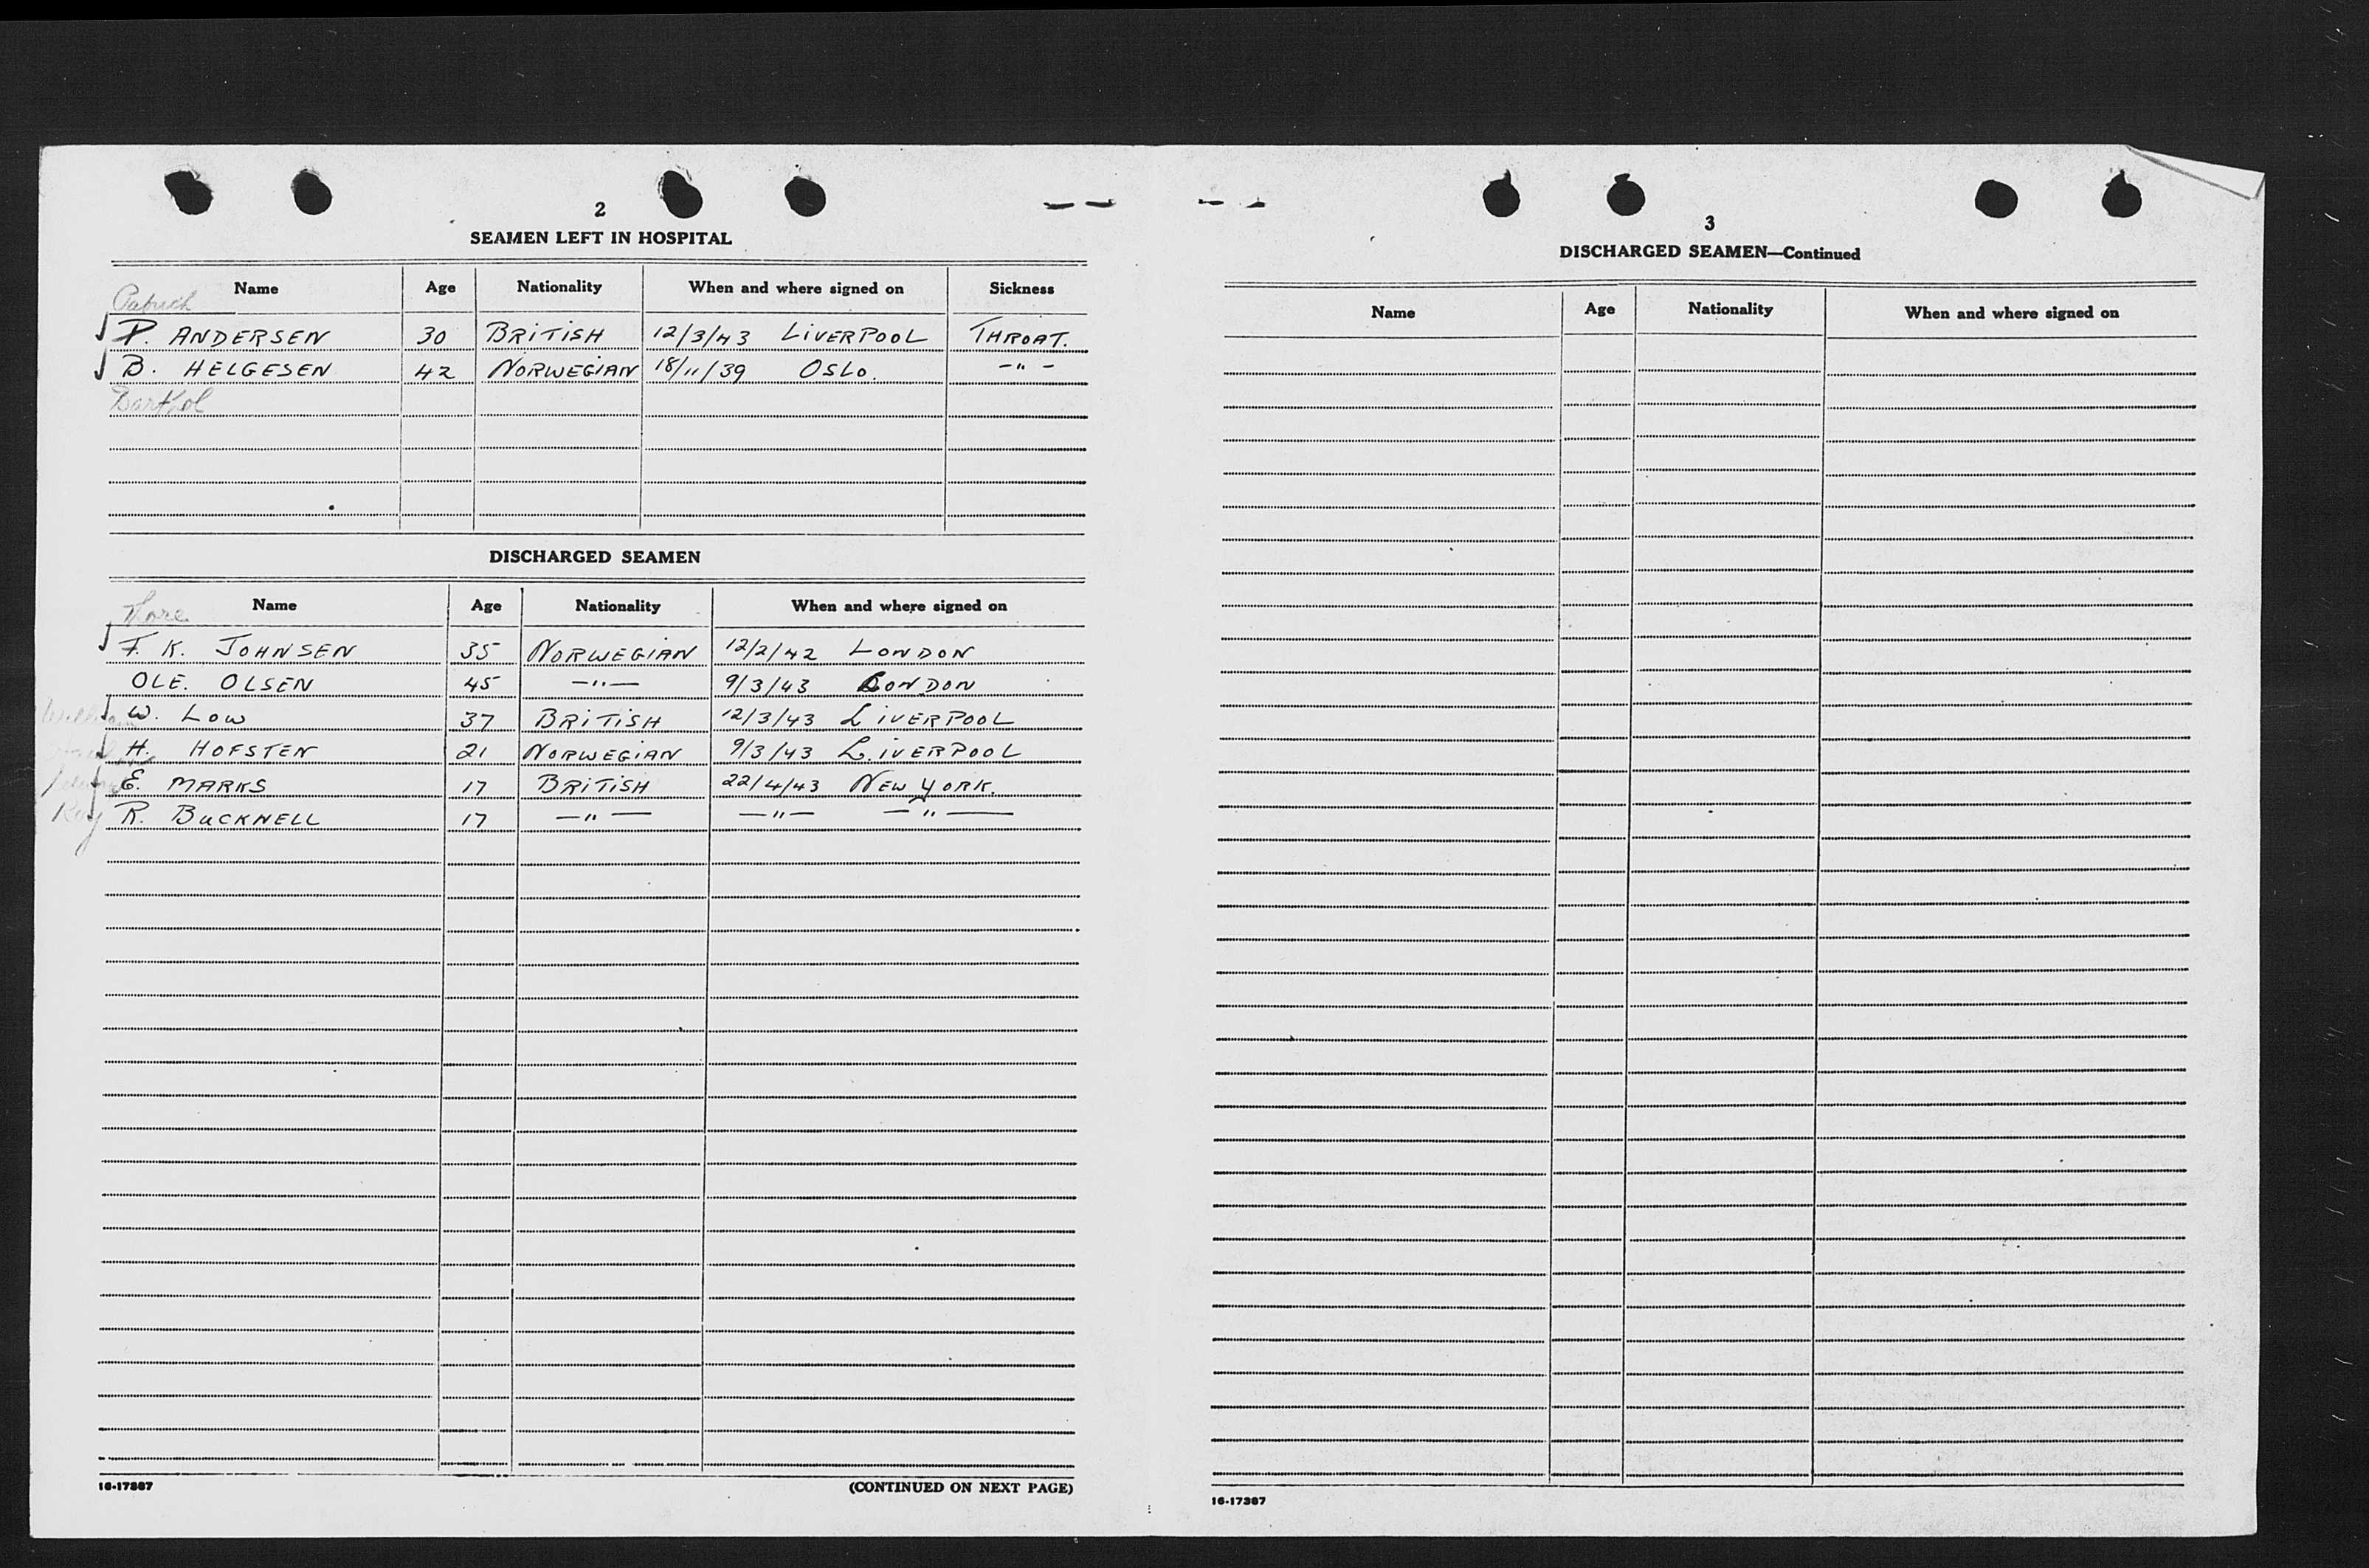 2
SEAMEN LEFT IN HOSPITAL
Name Age Nationality When and where signed on Sickness
Patrick
P. ANDERSEN 30 BRITISH 12/3/43 LIVERPOOL THROAT.
B. HELGESEN 42 NORWEGIAN 18/11/39 OSLO. -"-
Barthol
DISCHARGED SEAMEN
Name Age Nationality When and where signed on
K. JOHNSEN 35 NORWEGIAN 12/2/42 LONDON
OLE. OLSEN 45 -"- 9/3/43 LONDON
William W. LOW 37 BRITISH 12/3/43 LIVERPOOL
H. HOFSTEN 21 NORWEGIAN 9/3/43 LIVERPOOL
E. MARKS 17 BRITISH 22/4/43 NEW YORK.
Roy R. BUCKNELL 17 -"- -"- -"-
16-17387 (CONTINUED ON NEXT PAGE)
3
DISCHARGED SEAMEN—Continued
Name Age Nationality When and where signed on
16-17387